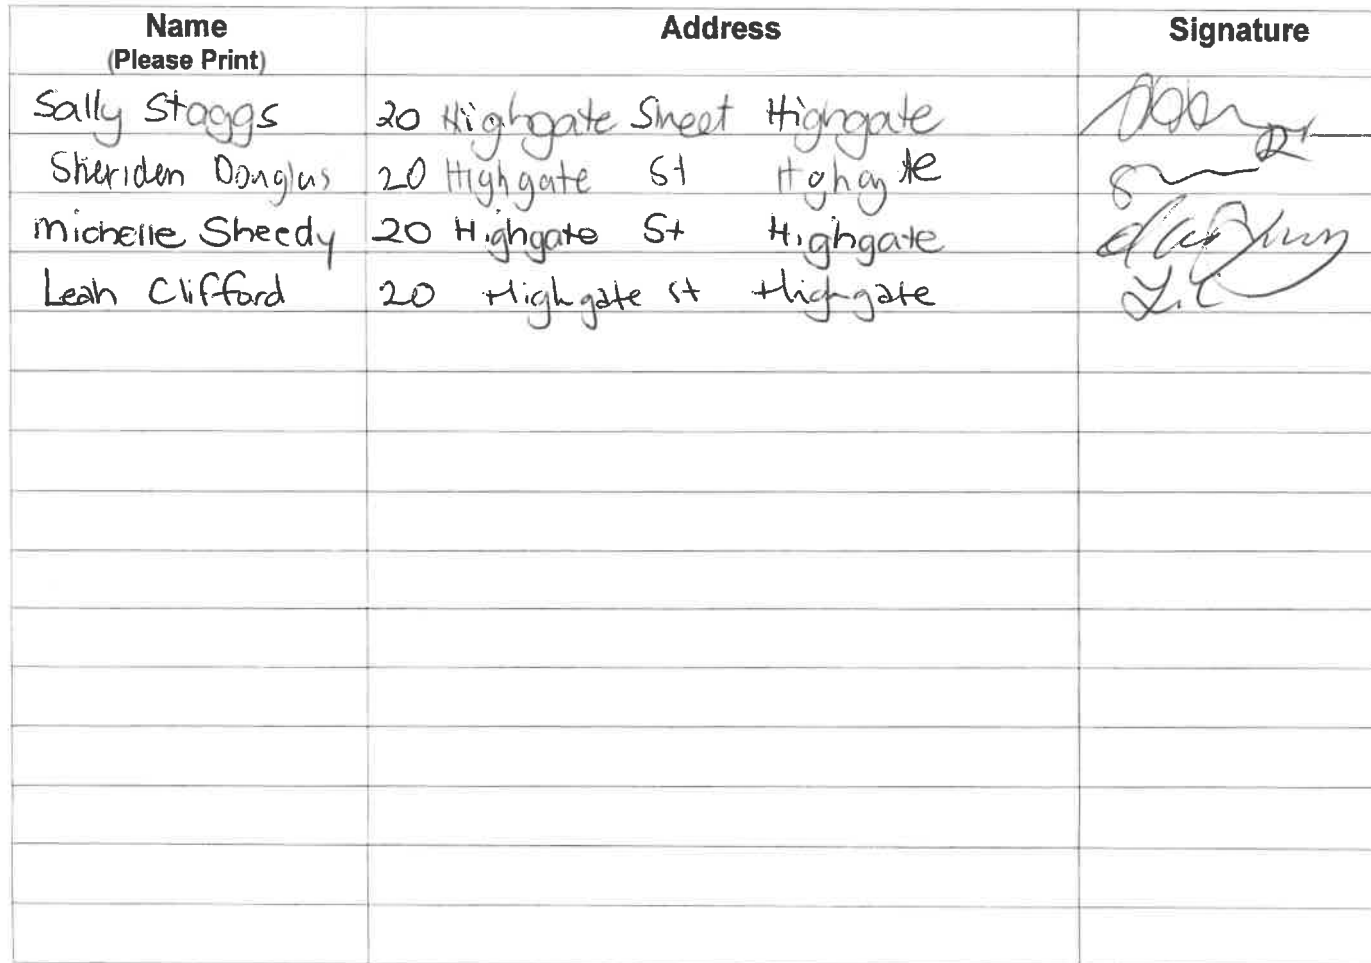 Name Address Signature
(Please Print)
Sally Staggs 20 Highgate Street Highgate
Sheriden Douglas 20 Highgate St
Michelle Sheedy 20 Highgate St Highgate
Leah Clifford 20 Highgate st Highgate L.C